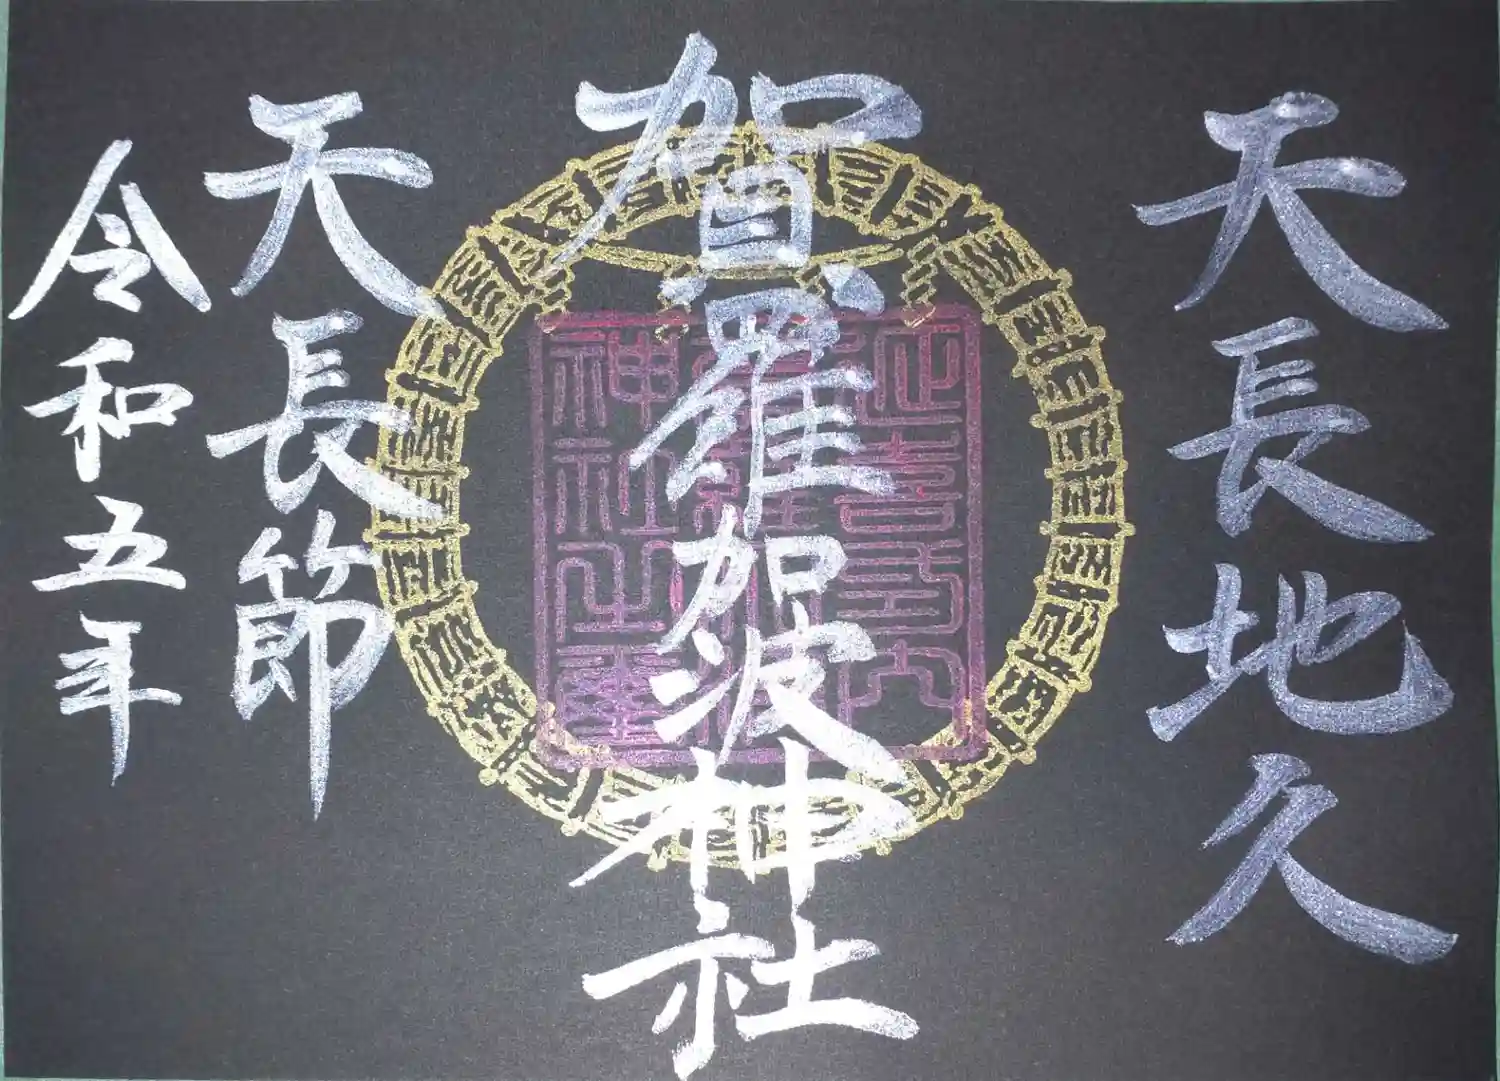 天長地久
賀羅加波神社
天長節
令和五年